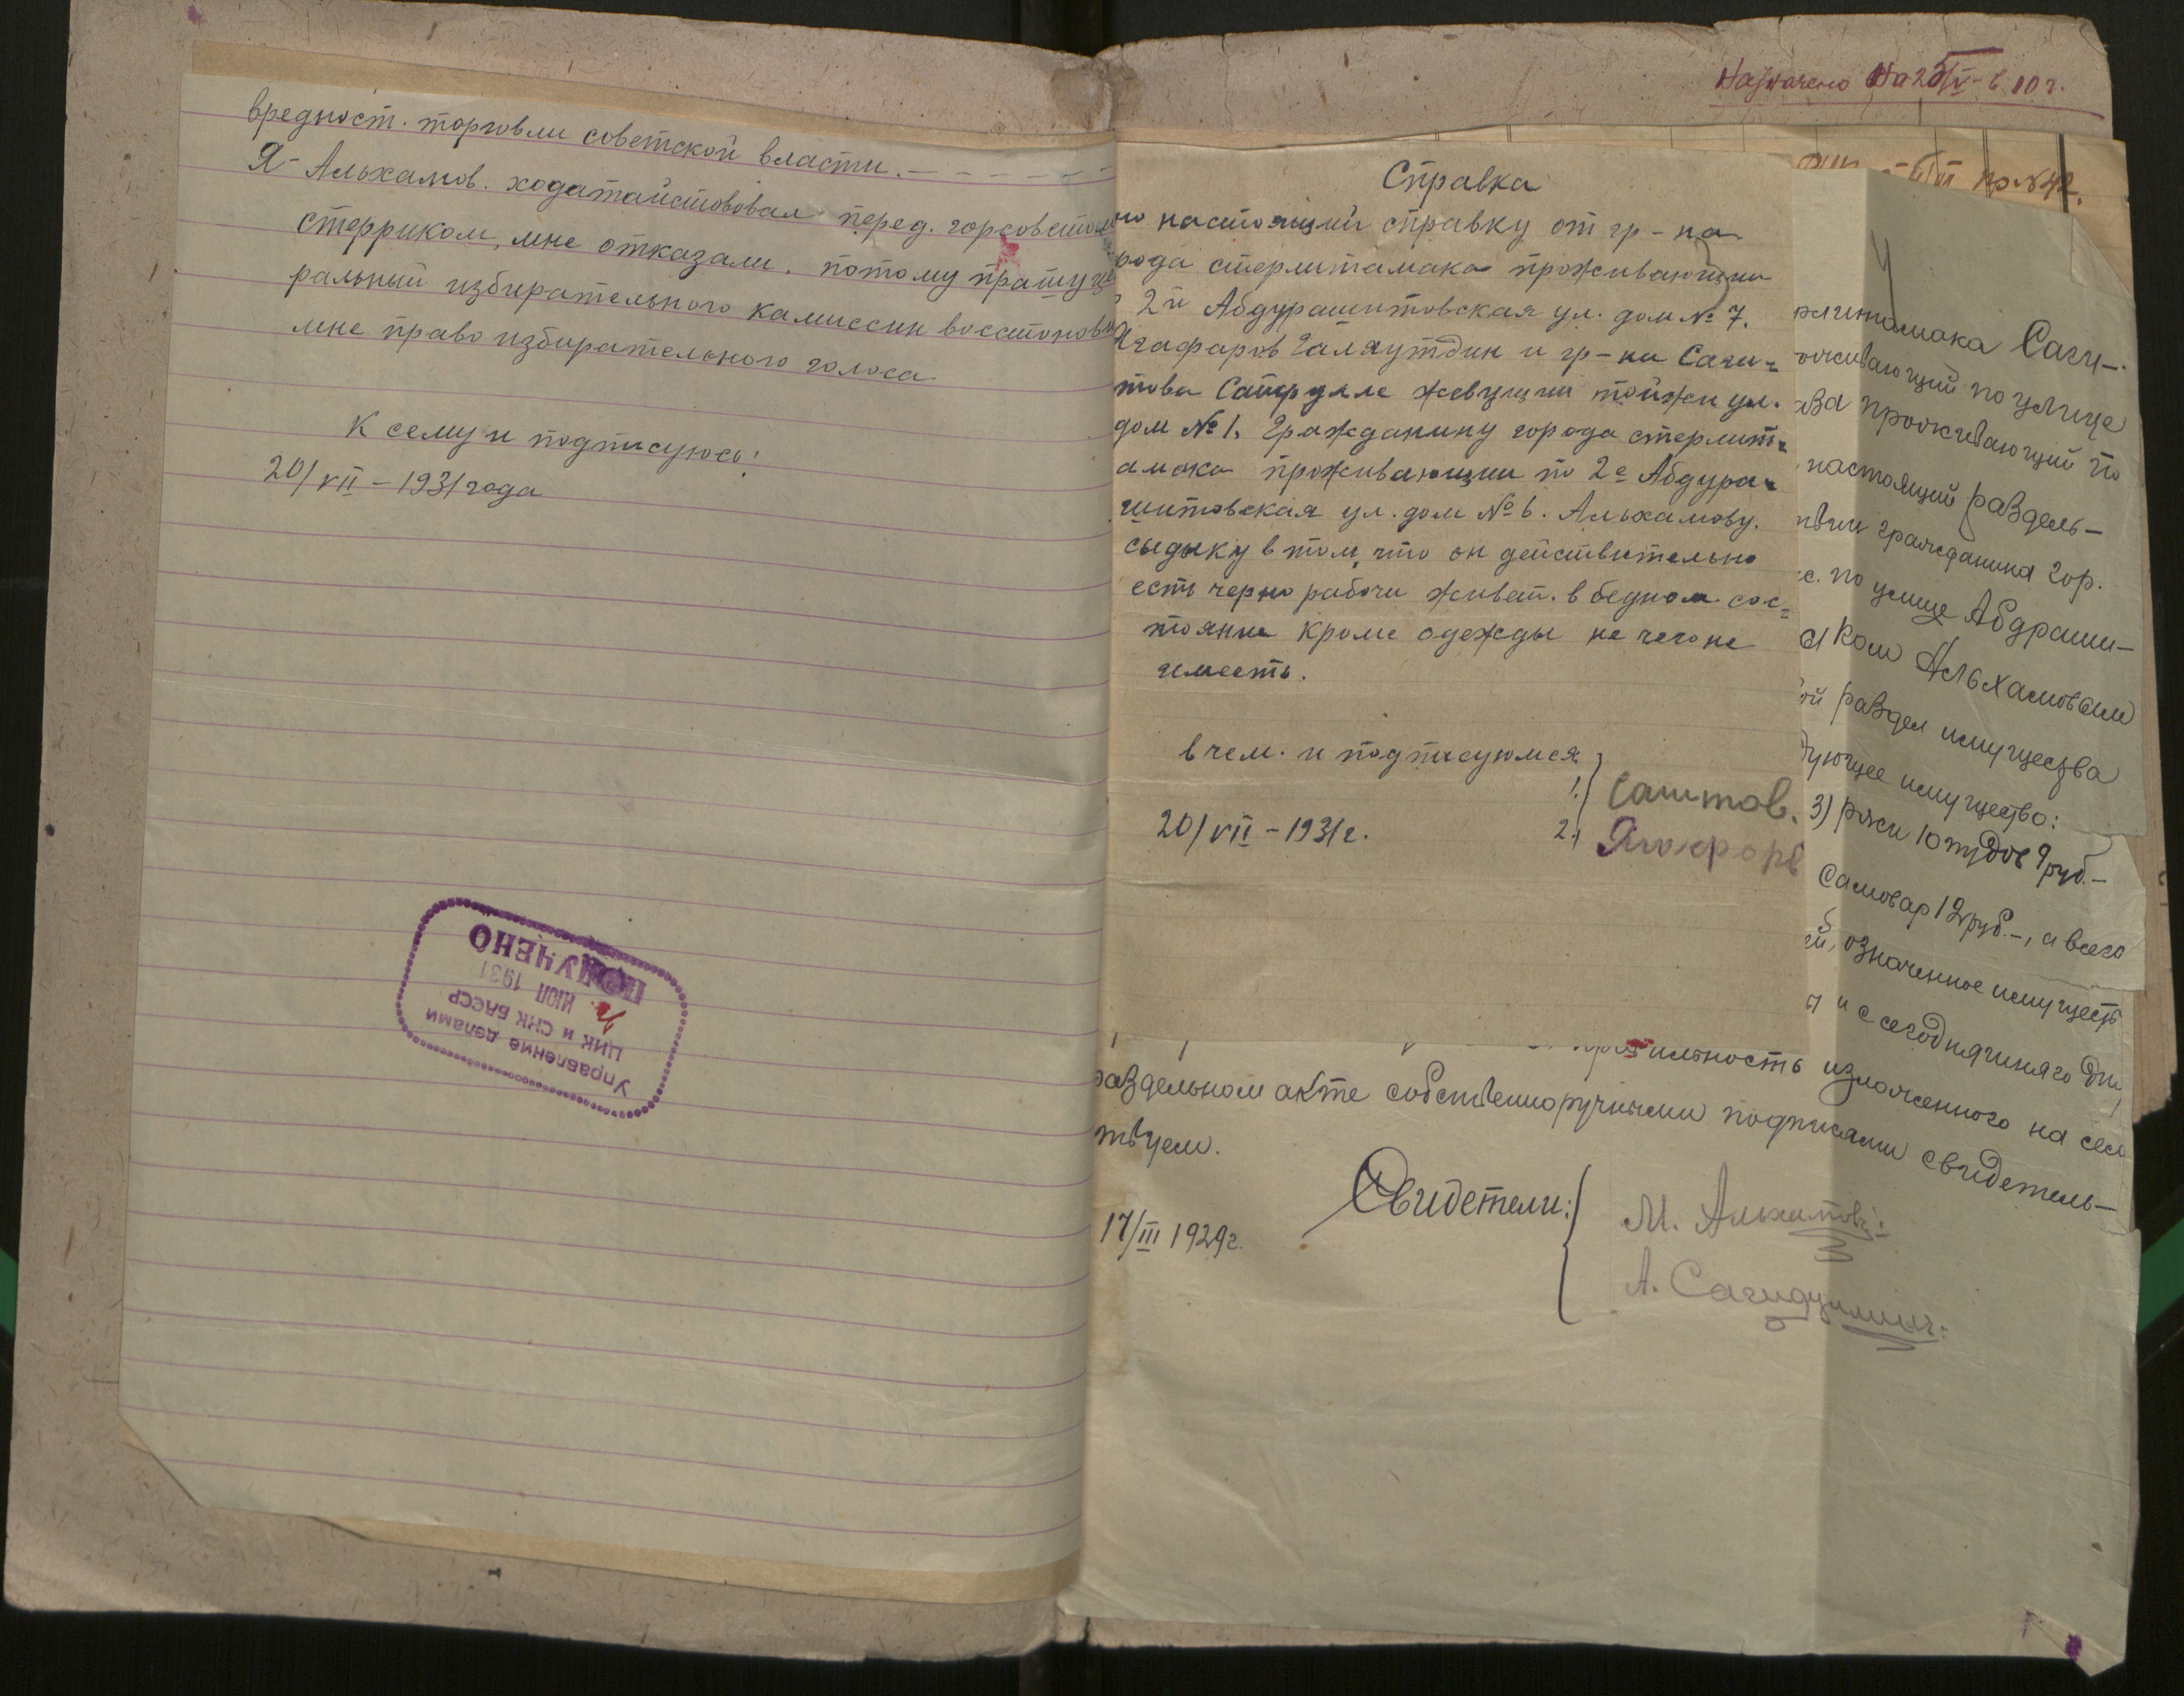 вредност. торговли советской власти. — — — — — —
Я - Альхамов. ходатайстововал перед. горсоветом
стерриком, мне отказали. потому прашу це
ральный избирательного камиссии восстонови
мне право избирательного голоса
К сему и подписуюсь!
20/VII - 1931 года
Управление делами
ЦИК и СНК БАССР
ИЮЛ 1931
ПОЛУЧЕНО
Назначено на 25/IV - в 10 г.
Справка
но настоящий справку от гр - на
рода стерлитамака проживающии
2й Абдурашитовская ул. дом № 7.
Ягафаров Галяутдин и гр - ки Саги-
това Сайфулле жевущии тойжи ул.
дом № 1, Гражданину города стерлит-
амака проживающии по 2е Абдура-
шитовская ул. дом № 6. Альхамову.
сыдыку в том, что он действительно
есть черно рабочи живет. в бедном. сос-
тояние кроме одежды не чего не
имеет.
в чем. и подписуюмся
1.) Саитов.
20/VII - 1931 г. 2.)
пр. № 42.
рлитамака Саги-
оживающий по улице
ава проживающий по
настоящий раздель-
твии гражданина гор.
с. по улице Абдраши-
ком Альхамовым
ой раздел имущества
дующее имущество:
3) ржи 10 пудов 9 руб.-
самовар 12 руб.-, а всего
ей, означенное имуществ
и с сегоднячиняго дня
правильность изложенного на сем
раздельном акте собственноручными подписами свидетель-
твуем.
Свидетели:
М. Альхамов:
17/III 1929 г.
А. Сагидуллин: